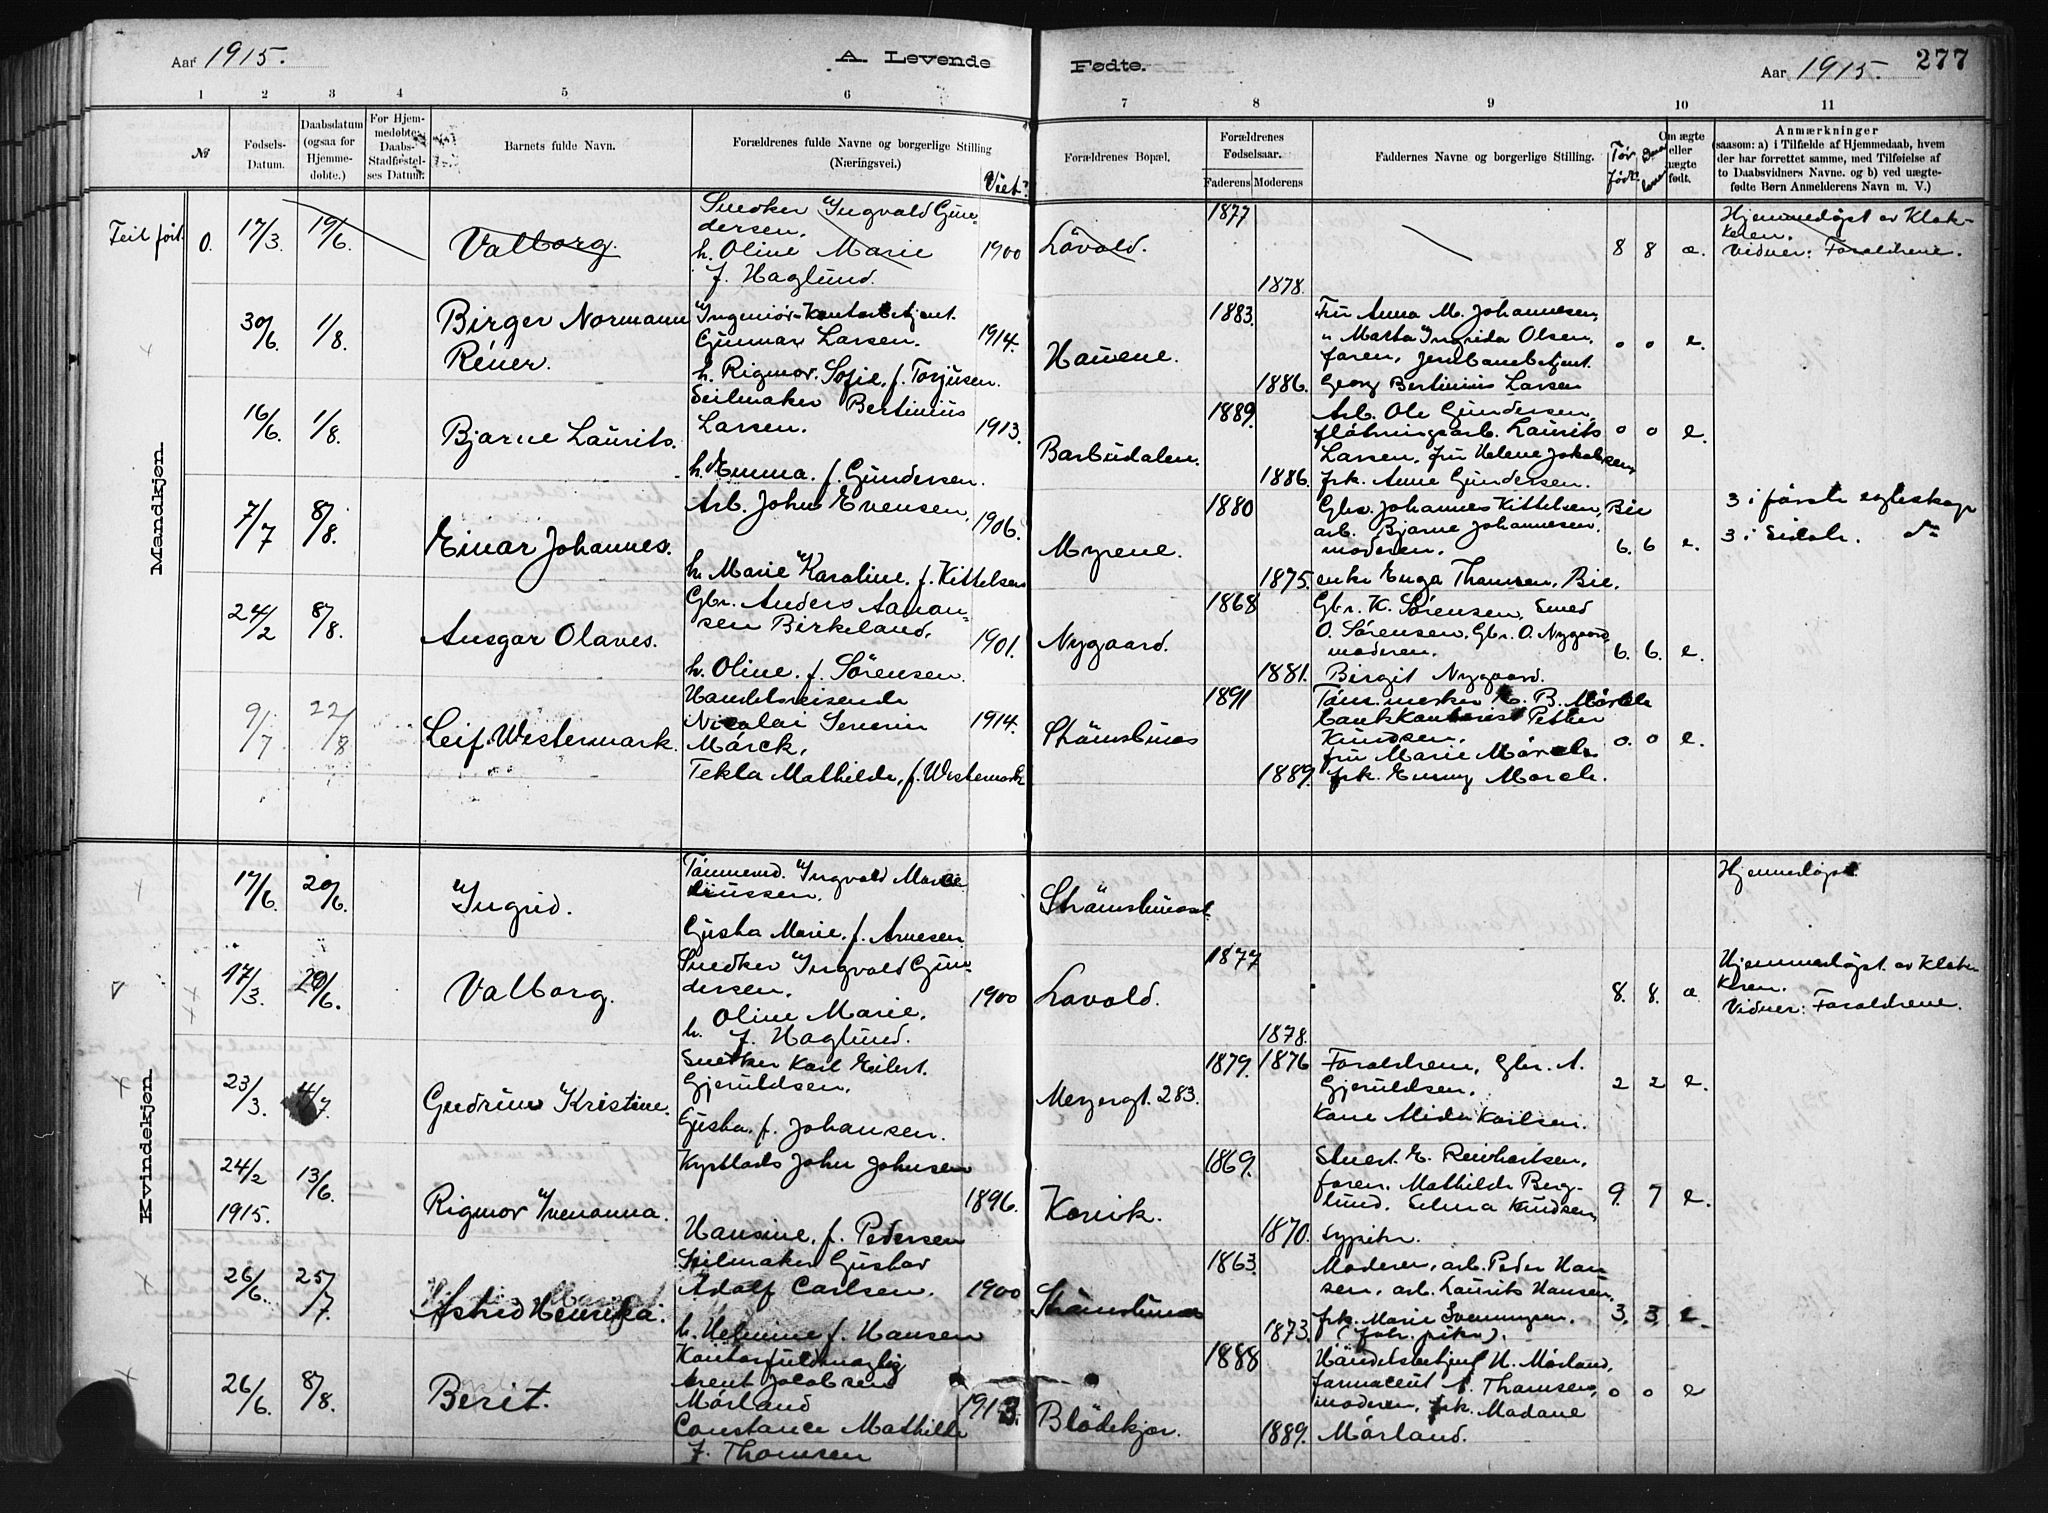 Aar 1915.
A. Levende Fødte.
Aar 1915.
277
1 2 3 4 5 6 7 8 9 10 11
№
Fødsels-
Datum.
Daabsdatum
(ogsaa for
Hjemme-
døbte.)
For Hjem-
medøbte:
Daabs-
Stadfæstel-
ses Datum.
Barnets fulde Navn.
Forældrenes fulde Navne og borgerlige Stilling
(Næringsvei.)
Viet
Forældrenes Bopæl.
Forældrenes
Fødselsaar.
Faderens Moderens
Faddernes Navne og borgerlige Stilling.
Før
født
Om ægte
eller
uægte
født.
Anmærkninger
(saasom: a) i Tilfælde af Hjemmedaab, hvem
der har forrettet samme, med Tilføielse af
to Daabsvidners Navne. og b) ved uægte-
fødte Børn Anmelderens Navn m. V.)
Mandkjøn.
Feil ført.
0. 17/3. 19/6.
Valborg.
Snedker Yngvald Gun-
dersen.
h. Oline Marie
f. Haglund.
1900
Lövold.
1877
1878.
8 8 æ.
Hjemmedøpt av Klok-
keren.
Vidner: Foraldrene.
30/6. 1/8.
Birger Normann
Reuer.
Ingeniør-Kontorbetjent.
Gunnar Larsen.
h. Rigmor Sofie, f. Torjusen.
1914.
Hauene.
1883.
1886.
Fru Anna M. Johannesen,
" Marta Ingrida Olsen,
faren, Jernbanebetjent.
Georg Bertinius Larsen
0 0 e.
16/6. 1/8.
Bjarne Laurits.
Seilmaker Bertinius
Larsen.
h. Emma. f. Gundersen.
1913.
Barbudalen.
1889.
1886.
Arb. Ole Gundersen,
fløtningsarb. Laurits
Larsen, fru Helene Jakobsen,
frk. Anne Gundersen.
0 0 e.
7/7 8/8.
Einar Johannes.
Arb. John Evensen,
h. Marie Karoline. f. Kittelsen
1906.
Myrene.
1880
1875.
Gbr. Johannes Kittelsen, Bie
arb. Bjarne Johannesen.
moderen.
enke Enga Thamsen, Bie.
6. 6 e.
3 i første egteskap
3 i Sidste. do
24/2 8/8.
Ansgar Olaves.
Gbr. Anders Aanan-
sen Birkeland,
h. Oline. f. Sørensen.
1901.
Nygaard.
1868
1881.
Gbr. K. Sørensen, Smed
O. Sørensen, Gbr. O. Nygaard
moderen.
Birgit Nygaard.
6. 6. e.
9/7 22/8
Leif Westermark.
Handelsreisende
Nicolai Severin
Mørck,
Tekla Mathilde, f. Westermark
1914.
Strömsbuos
1891
1889.
B. Mørch
bankkontorist Petter
Knudsen,
fru Marie Mørch
frk. Emmy Morch.
0. 0 e.
Kvindekjøn.
17/6. 20/6.
Ingrid.
Tømmermd. Yngvald Marce-
liussen.
Gusta Marie. f. Arnesen.
Strömsbuosst
Hjemmedøpt.
17/3. 20/6.
Valborg.
Snedker Yngvald Gun-
dersen.
Oline Marie.
h. f. Haglund.
1900
Lovold.
1877
1878.
8. 8. æ
Hjemmedøpt av Klok-
keren.
Vidner: Foraldrene.
23/3. 4/7.
Gudrun Kristine.
Snedker Karl Eilert
Gjeruldsen,
Gusta. f. Johansen.
Meyergt. 283.
1879. 1876
Foraldrene, Gbr. A.
Gjeruldsen,
Kone Alida Karlsen.
2 2 e.
24/2 13/6.
1915.
Rigmor Yvenanna.
John Johnsen
Hansine, f. Pedersen
1896.
Korvik.
1869.
1870.
Stuert. E. Reinhartsen,
faren, Mathilde Berg-
lund, Selma Knudsen,
sypike.
9. 7 e.
26/6. 25/7.
Astrid Henrika.
Seilmaker Gustav
Adolf Carlsen.
h. Helmine f. Hansen
1900
Strömsbuos
1863.
1873.
Moderen, arb. Peder Han-
sen, arb. Laurits Hansen,
frk. Marie Svenningsen.
(fabr. pike).
3. 3. e.
26/6. 8/8.
Berit.
Kontorfuldmægtig
Arent Jacobsen
Mörland
Constance Mathilde
f. Thomsen
1913.
Blödekjær.
1888
1889.
Handelsbetjent H. Mørland,
farmaceut A. Thomsen,
moderen, frk. Madane
Mørland.
0 0 e